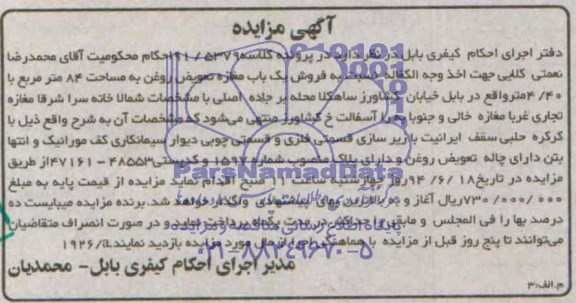 آگهی مزایده
دفتر اجرای احکام کیفری بابل در نظر دارد در پرونده کلاسه ۵۳۷۹۸ / ۹۱ احکام محکومیت آقای محمدرضا
نعمتی کلایی جهت اخذ وجه الکفاله نسبت به فروش یک باب مغازه تعویض روغن به مساحت ۸۴ متر مربع با
۴/۴۰ متر واقع در بابل خیابان کشاورز ساهکلا محله بر جاده اصلی با مشخصات شمالا خانه سرا شرقا مغازه
تجاری غربا مغازه خالی و جنوبا به را آسفالت خ کشاورز منتهی می‌شود که مشخصات آن به شرح واقع ذیل با
کرکره حلبی سقف ایرانیت با زیر سازی قسمتی فلزی و قسمتی چوبی دیوار سیمانکاری کف موزائیک و انتها
بتن دارای چاله تعویض روغن و دارای پلاک منصوب شماره ۱۵۹۷ و کدپستی ۴۸۵۵۳ - ۴۷۱۶۱ از طریق
مزایده در تاریخ ۱۸ /۶/ ۹۴ روز چهارشنبه ساعت ۱۱ صبح اقدام نماید مزایده از قیمت پایه به مبلغ
۷۳۰/۰۰۰/۰۰۰ ریال آغاز و به بالاترین بهای پیشنهادی واگذار خواهد شد. برنده مزایده میبایست ده
درصد بها را فی المجلس و مابقی را حداکثر در مدت یکماه پرداخت نماید و در صورت انصراف متقاضیان
می‌توانند تا پنج روز قبل از مزایده با هماهنگی اجرا از مال مورد مزایده بازدید نمایند. ۱۹۲۶/a
مدیر اجرای احکام کیفری بابل- محمدیان
م.الف:۳
ParsNamadData
پایگاه اطلاع رسانی مناقصه و مزایده
۰۲۱-۸۸۳۴۹۶۷۰-۵